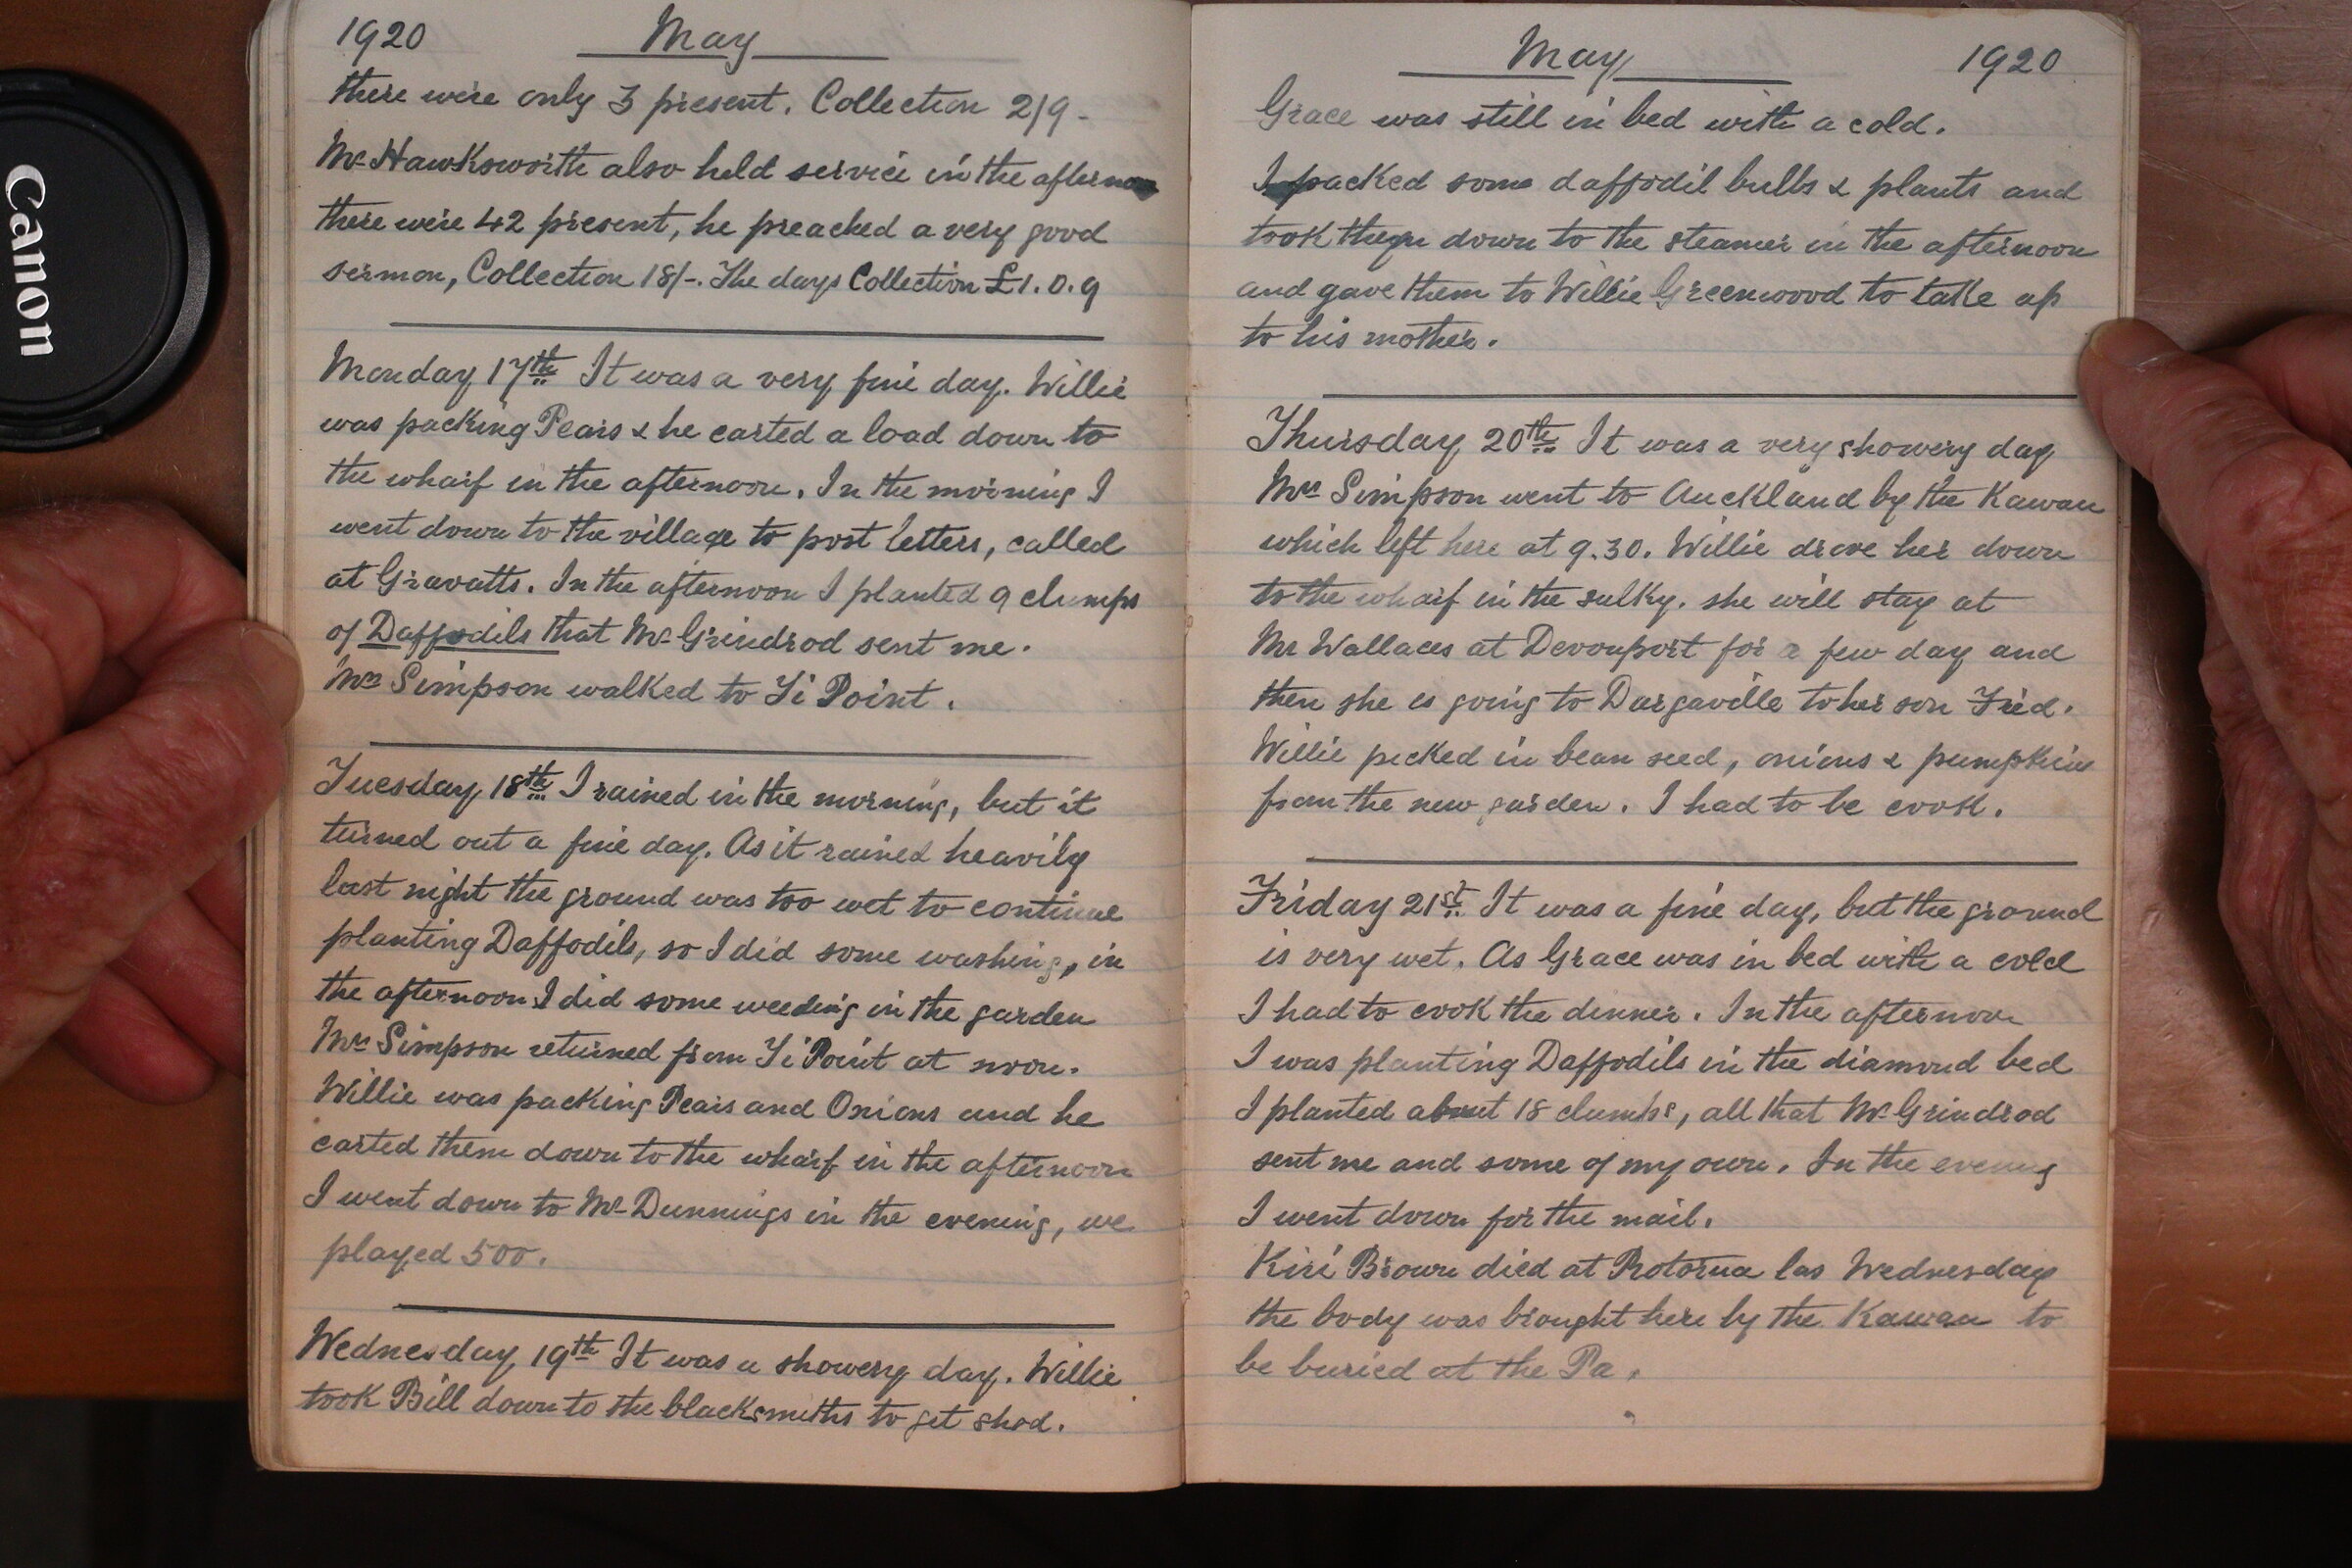 Canon
1920 May
there were only 3 present. Collection 2/9 -
Mr Hawksworth also held service in the afternoon
there were 42 present, he preached a very good
sermon, Collection 18/-. The days Collection £1.0.9
Monday 17th It was a very fine day. Willie
was packing Pears & he carted a load down to
the wharf in the afternoon. In the morning I
went down to the village to post letters, called
at Gravatts. In the afternoon I planted 9 clumps
of Daffodils that Mr Grindrod sent me.
Mrs Simpson walked to Ti Point.
Tuesday 18th I rained in the morning, but it
turned out a fine day. As it rained heavily
last night the ground was too wet to continue
planting Daffodils, so I did some washing, in
the afternoon I did some weeding in the garden
Mrs Simpson returned from Ti Point at noon.
Willie was packing Pears and Onions and he
carted them down to the wharf in the afternoon
I went down to Mr Dunnings in the evening, we
played 500.
Wednesday 19th It was a showery day. Willie
took Bill down to the blacksmiths to get shod.
May 1920
Grace was still in bed with a cold.
I packed some daffodil bulbs & plants and
took them down to the steamer in the afternoon
and gave them to Willie Greenwood to take up
to his mother.
Thursday 20th It was a very showery day
Mrs Simpson went to Auckland by the Kawau
which left here at 9.30. Willie drove her down
to the wharf in the sulky. she will stay at
Mr Wallaces at Devonport for a few day and
then she is going to Dargaville to her son Fred.
Willie picked in bean seed, onions & pumpkins
from the new garden. I had to be cook.
Friday 21st It was a fine day, but the ground
is very wet. As Grace was in bed with a cold
I had to cook the dinner. In the afternoon
I was planting Daffodils in the diamond bed
I planted about 18 clumps, all that Mr Grindrod
sent me and some of my own. In the evening
I went down for the mail.
Kiri Brown died at Rotorua las Wednesday
the body was brought here by the Kawau to
be buried at the Pa.